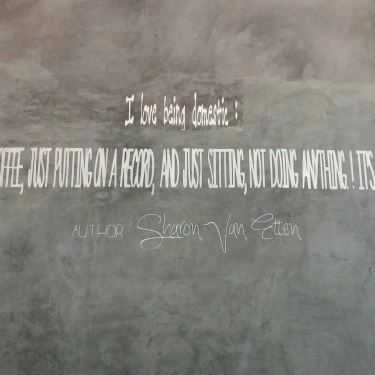 I love being domestic :
FFEE, JUST PUTTING ON A RECORD, AND JUST SITTING, NOT DOING ANYTHING. ! ITS
AUTHOR Sharon Van Etten